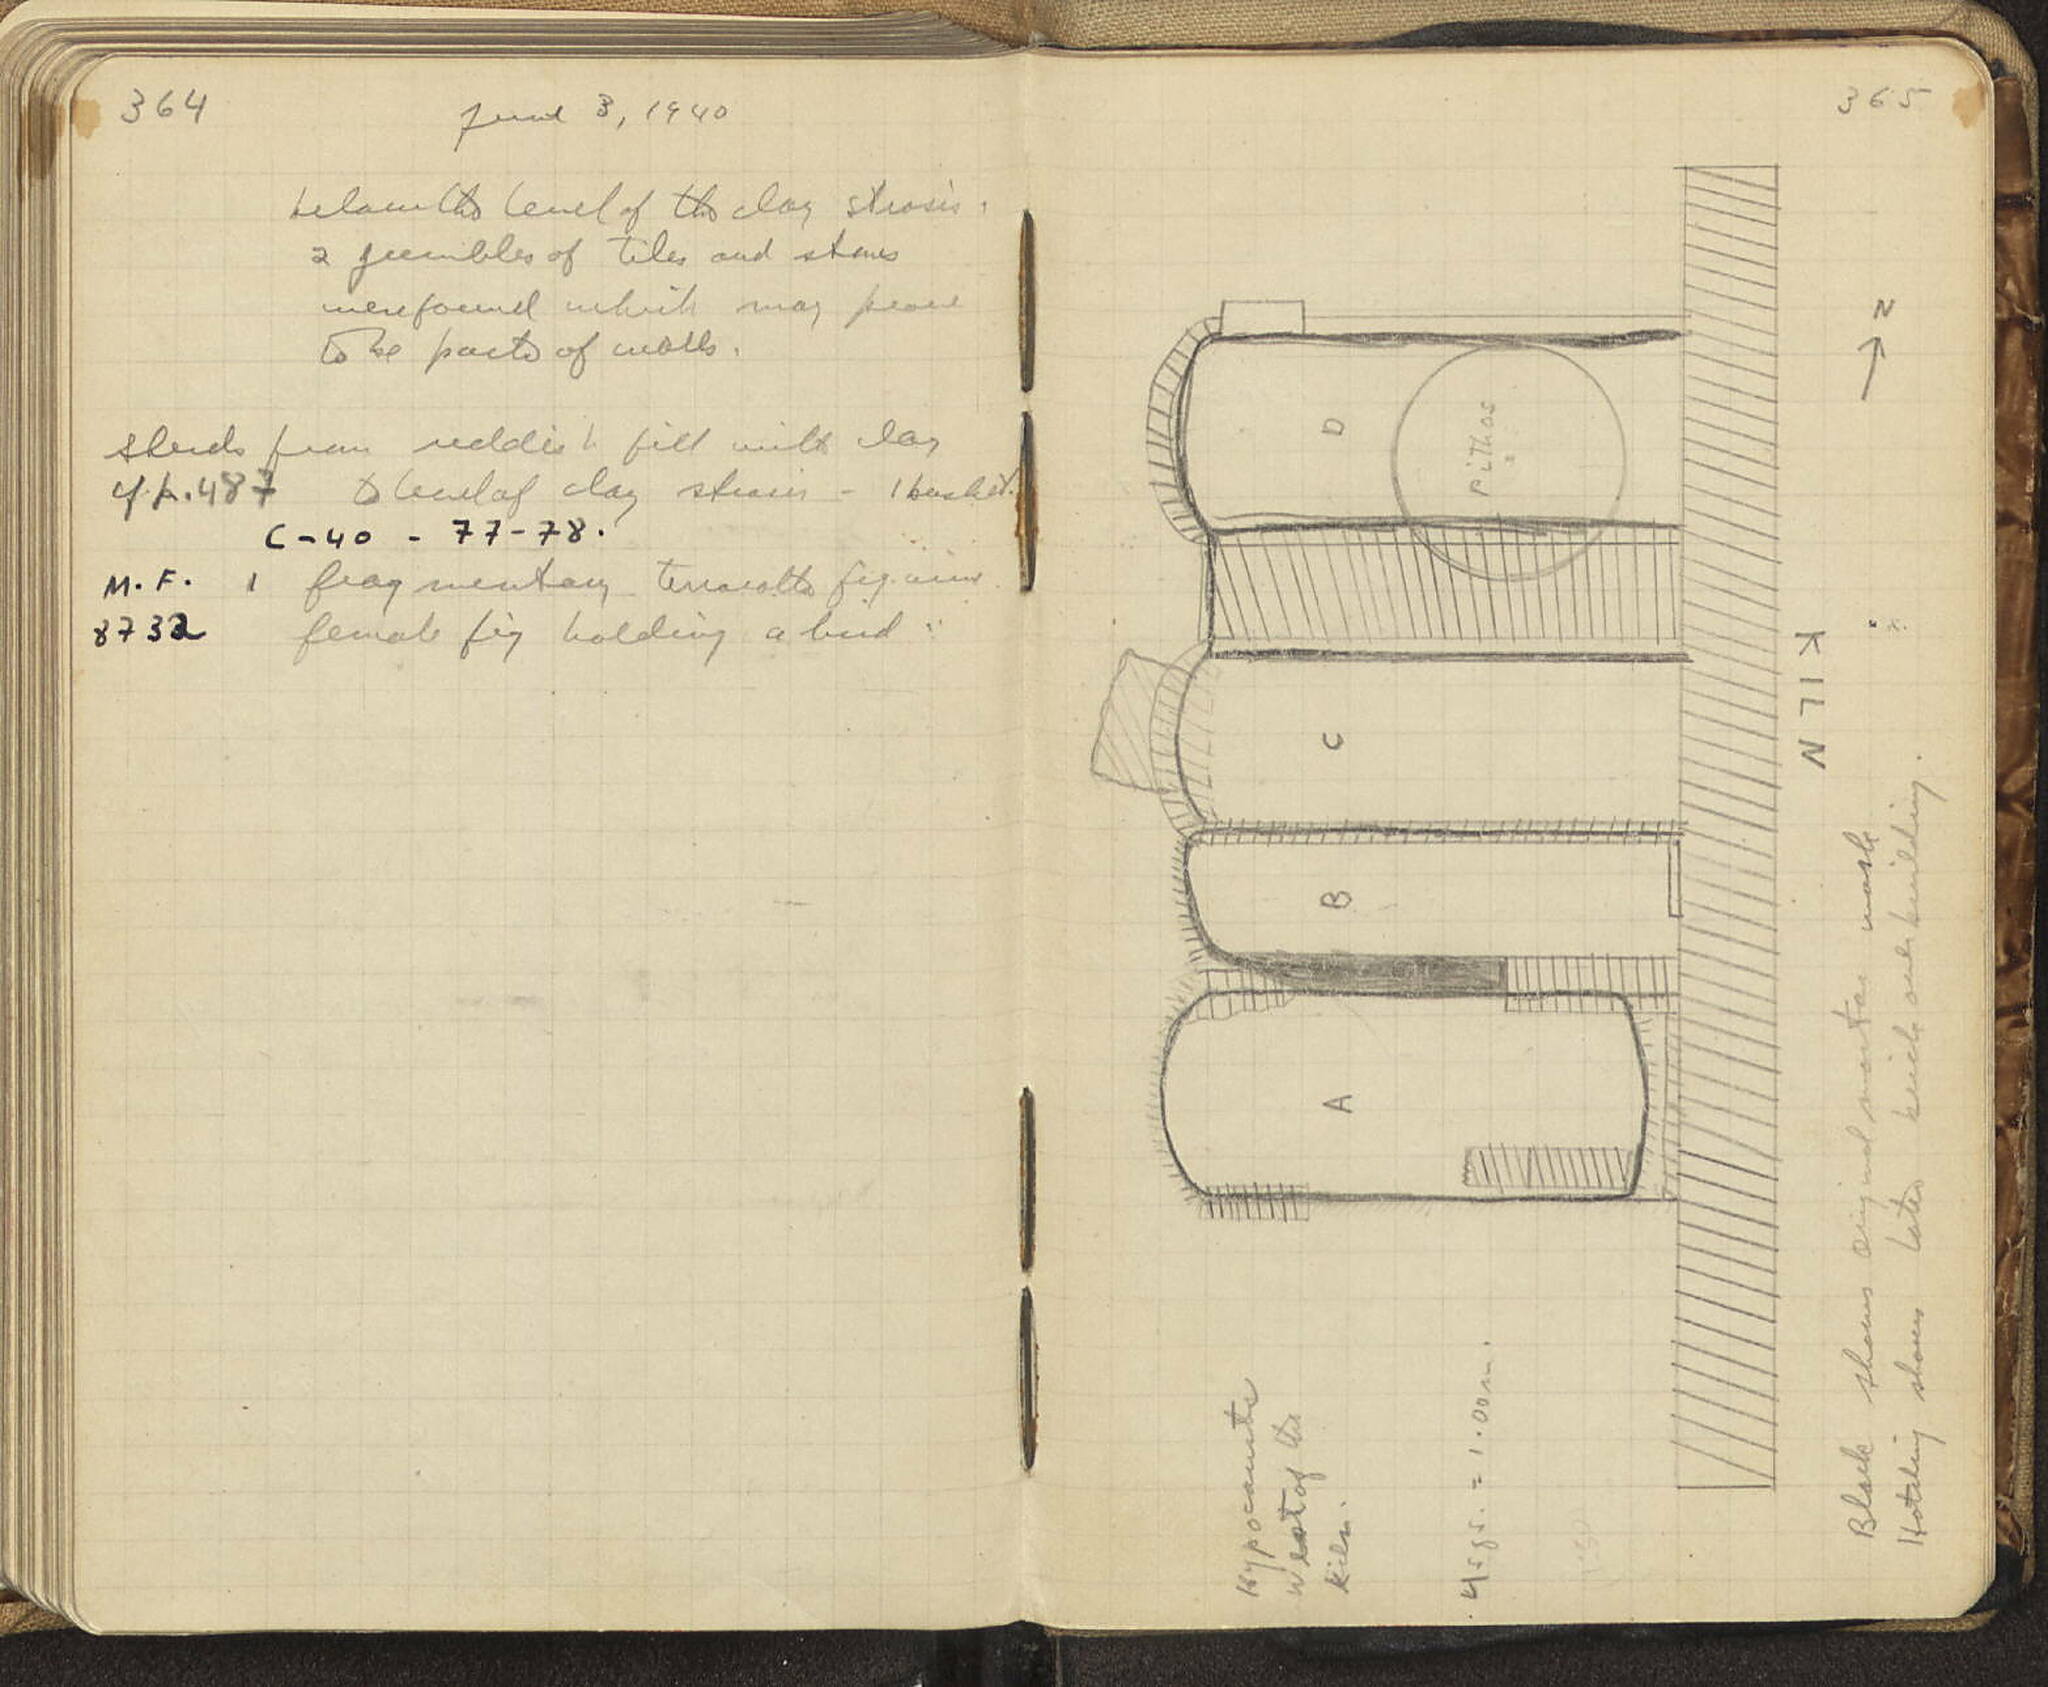 364
June 3, 1940
below the level of the clay strosis.
2 jumbles of tiles and stones
were found which may prove
to be parts of walls.
Sherds from reddish fill with clay
cf p. 487 to level of clay strosis - 1 basket.
C-40 - 77-78.
M.F. 1 fragmentary terracotta figurine
8732 female fig holding a bird
365
N
D
Pithos
C
B
A
KILN
Hypocausts
West of the
kiln.
4 sqs. = 1.00 m.
Black shows original mortar walls
Hatching shows later brick out building.